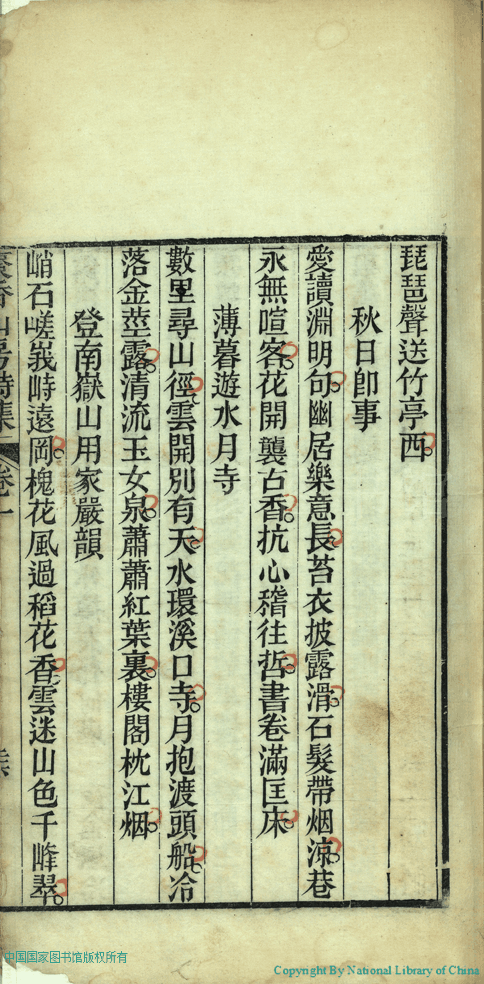 琵琶聲送竹亭西
秋日卽事
愛讀淵明句幽居樂意長苔衣披露滑石髮帶烟涼巷
永無喧客花開襲古香抗心稽往哲書卷滿匡床
薄暮遊水月寺
數里尋山徑雲開別有天水環溪口寺月抱渡頭船冷
落金莖露清流玉女泉蕭蕭紅葉裏樓閣枕江烟
登南嶽山用家嚴韻
峭石嵯峩峙遠岡槐花風過稻花香雲迷山色千峰翠
香山房詩集 卷一
中国国家图书馆版权所有
Copyright By National Library of China